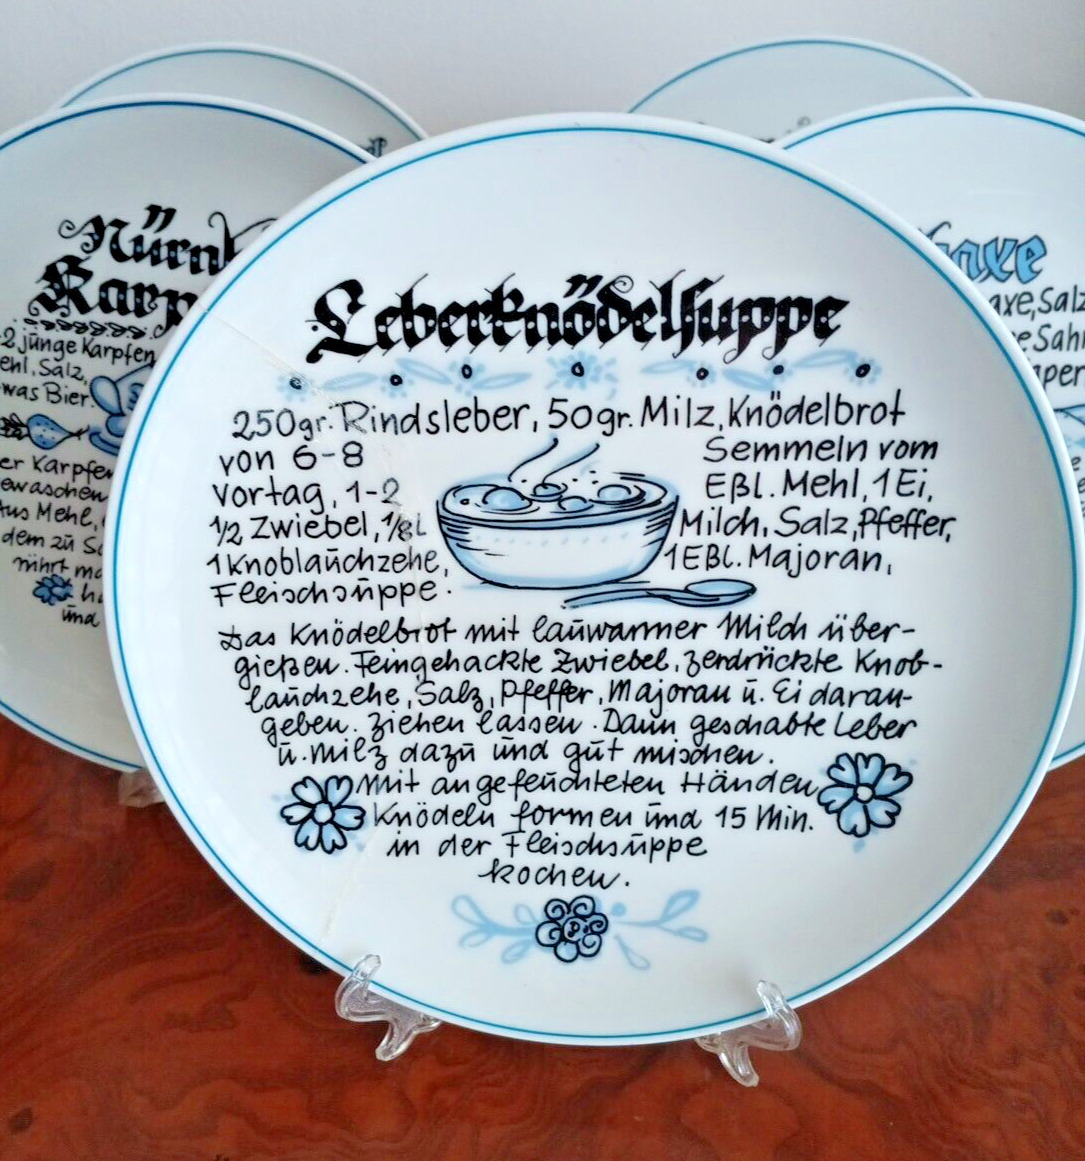 Leberknödelsuppe
250gr. Rindsleber, 50gr. Milz, Knödelbrot
von 6-8 Semmeln vom
Vortag, 1-2 Eßl. Mehl, 1 Ei,
1/2 Zwiebel, 1/8 L Milch, Salz, Pfeffer,
1 Knoblauchzehe, 1 Eßl. Majoran,
Fleischsuppe.
Das Knödelbrot mit lauwarmer Milch über-
gießen. Feingehackte Zwiebel, zerdrückte Knob-
lauchzehe, Salz, Pfeffer, Majoran u. Ei daran-
geben. Ziehen lassen. Dann geschabte Leber
u. Milz dazu und gut mischen.
Mit angefeuchteten Händen
Knödeln formen und 15 Min.
in der Fleischsuppe
kochen.
Nürn
Karp
2 junge Karpfen
ehl, Salz,
was Bier.
er Karpfen
ewaschen
Aus Mehl,
dem zu
mihrt
und
haxe
axe, Salz
e Sah
aper